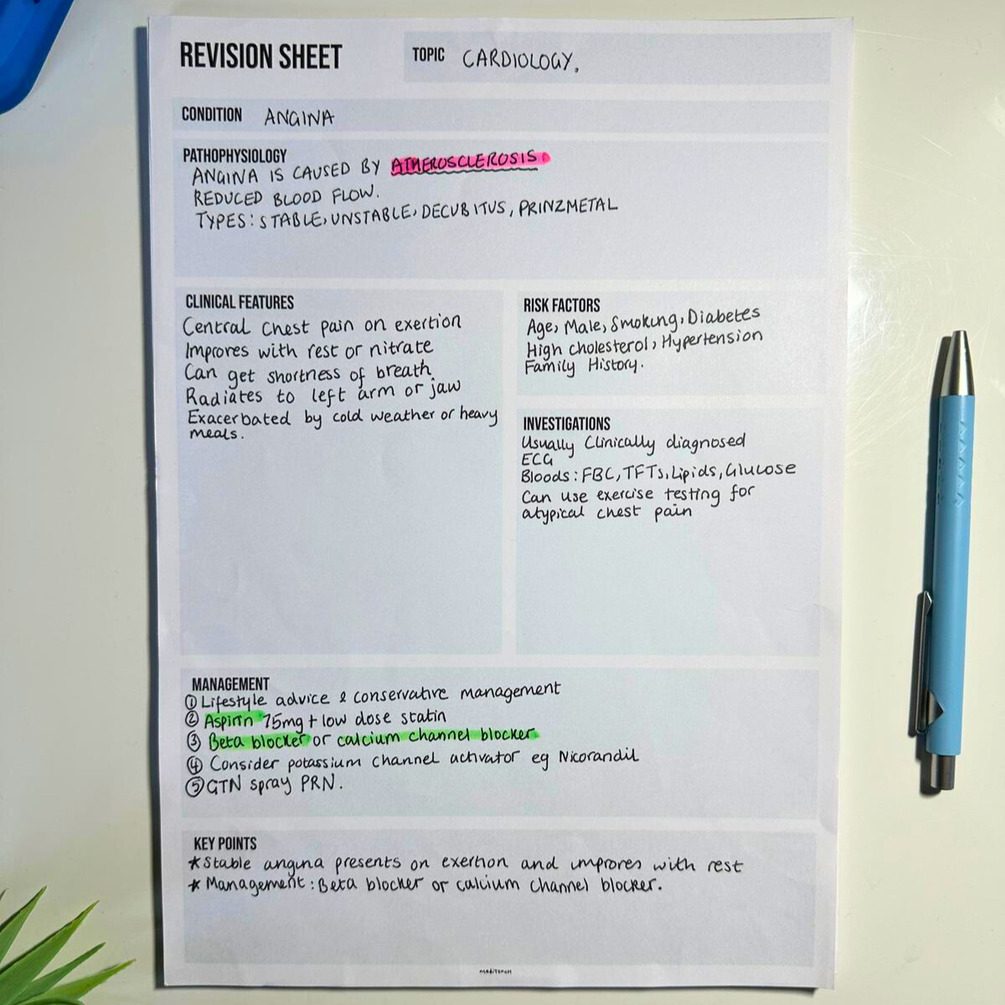 REVISION SHEET
TOPIC CARDIOLOGY.
CONDITION ANGINA
PATHOPHYSIOLOGY
ANGINA IS CAUSED BY ATHEROSCLEROSIS
REDUCED BLOOD FLOW.
TYPES: STABLE, UNSTABLE, DECUBITUS, PRINZMETAL
CLINICAL FEATURES
Central chest pain on exertion
Improves with rest or nitrate
Can get shortness of breath
Radiates to left arm or jaw
Exacerbated by cold weather or heavy
meals.
RISK FACTORS
Age, Male, Smoking, Diabetes
High cholesterol, Hypertension
Family History.
INVESTIGATIONS
Usually Clinically diagnosed
ECG
Bloods: FBC, TFTs, Lipids, Glucose
Can use exercise testing for
atypical chest pain
MANAGEMENT
① Lifestyle advice & conservative management
② Aspirin 75mg + low dose statin
③ Beta blocker or calcium channel blocker
④ Consider potassium channel activator eg Nicorandil
⑤ GTN spray PRN.
KEY POINTS
* Stable angina presents on exertion and improves with rest
* Management: Beta blocker or calcium channel blocker.